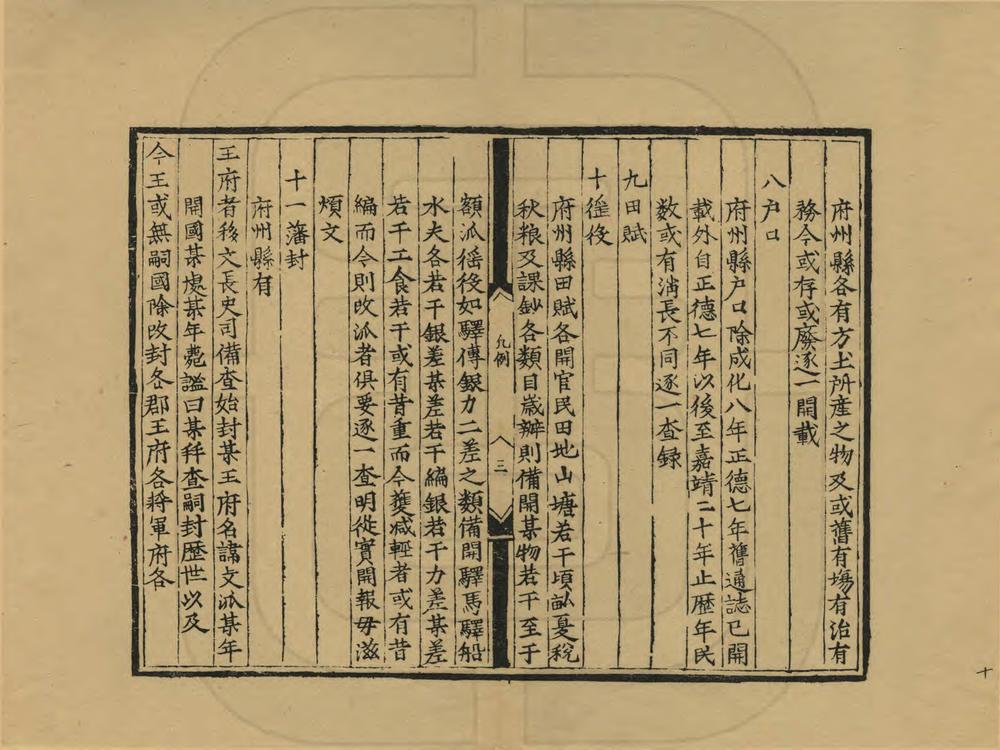 府州縣各有方土所產之物及或舊有場有治有
務今或存或廢逐一開載
八户口
府州縣户口除成化八年正德七年舊通誌已開
載外自正德七年以後至嘉靖二十年止歷年民
数或有消長不同逐一查録
九田賦
府州縣田賦各開官民田地山塘若干頃畝夏稅
秋粮及課鈔各類目歲辦則備開某物若干至于
十徭役
凡例
三
額派徭役如驛傳銀力二差之類備開驛馬驛船
水夫各若干銀差某差若干編銀若干力差某差
若干工食若干或有昔重而今蒦减輕者或有昔
編而今則攺派者俱要逐一查明從實開報毋滋
煩文
十一藩封
府州縣有
王府者移文長史司備查始封某王府名諱支派某年
開國某處某年薨謚曰某稱查嗣封歷世以及
今王或無嗣國除攺封各郡王府各將軍府各
十